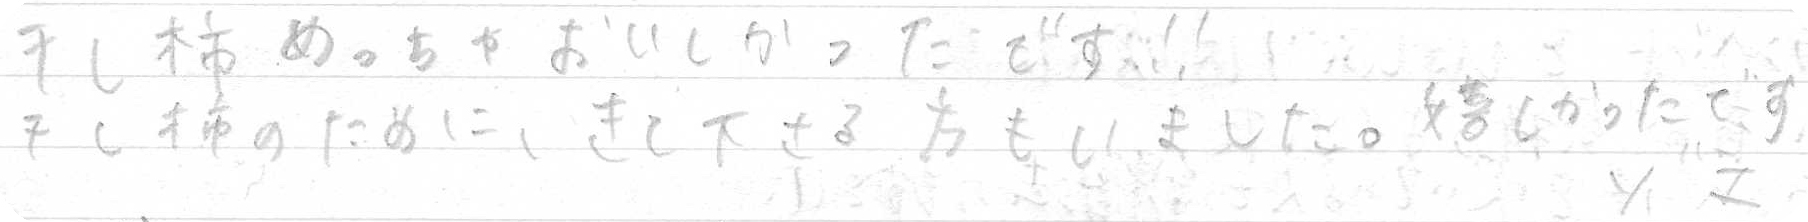 干し柿めっちゃおいしかったです!!
干し柿のために、きて下さる方もいました。嬉しかったです
Y, I